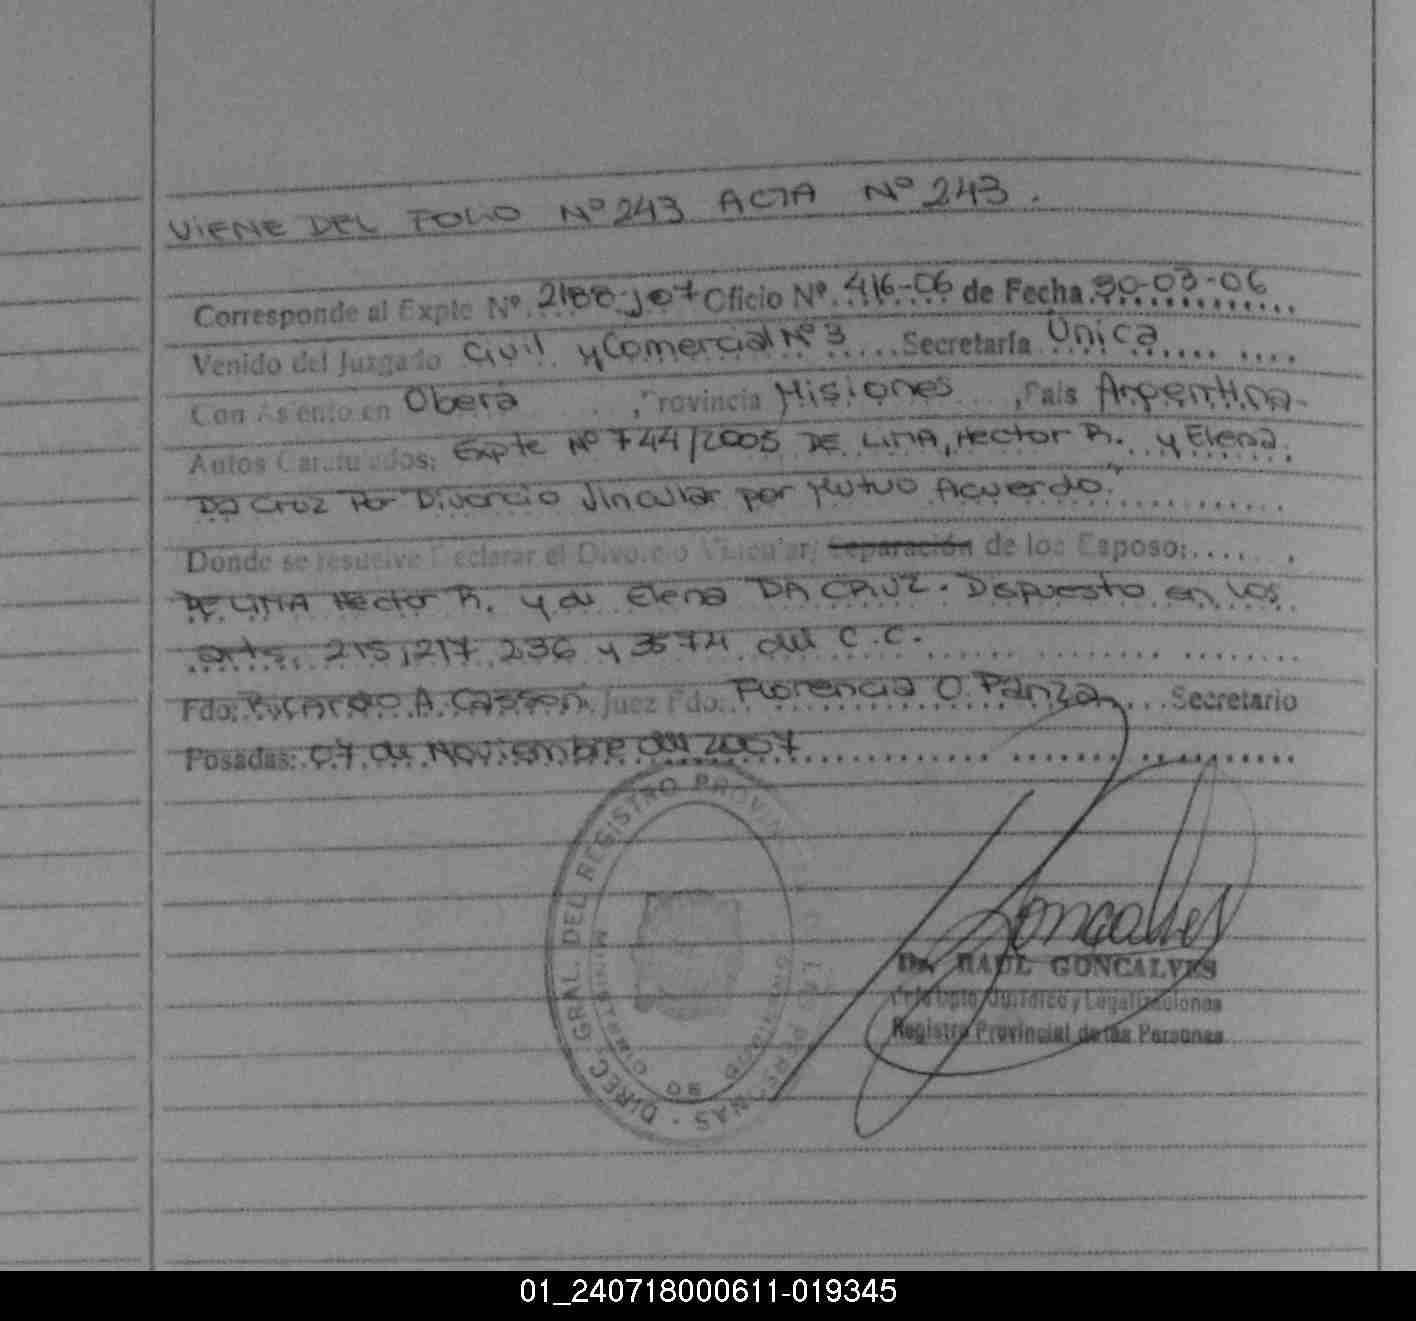 VIENE DEL FOLIO Nº 243 ACTA Nº 243.
Corresponde al Expte Nº 2188-J-07 Oficio Nº 416-06 de Fecha 30-03-06
Venido del Juzgado Civil y Comercial Nº 3 Secretaría Única
Con Asiento en Oberá, Provincia Misiones, País Argentina-
Autos Caratulados: Expte Nº 744/2005 DE LIMA, Hector R. y Elena
Da Cruz Por Divorcio Vincular por Mutuo Acuerdo."
Donde se resuelve Declarar el Divorcio Vincular, Separación de los Esposos:
DE LIMA Hector R. y de Elena DA CRUZ. Dispuesto en los
arts. 215, 217, 236 y 3574 del C.C.
Fdo: Ricardo A. Casson Juez Fdo: Florencia O. Panza Secretario
Posadas: 07 de Noviembre del 2007
DIREC. GRAL. DEL REGISTRO PROVINCIAL DE LAS PERSONAS
MINISTERIO DE GOBIERNO
Goncalves
Dr. RAUL GONCALVES
Jefe Dpto. Jurídico y Legalizaciones
Registro Provincial de las Personas
01_240718000611-019345